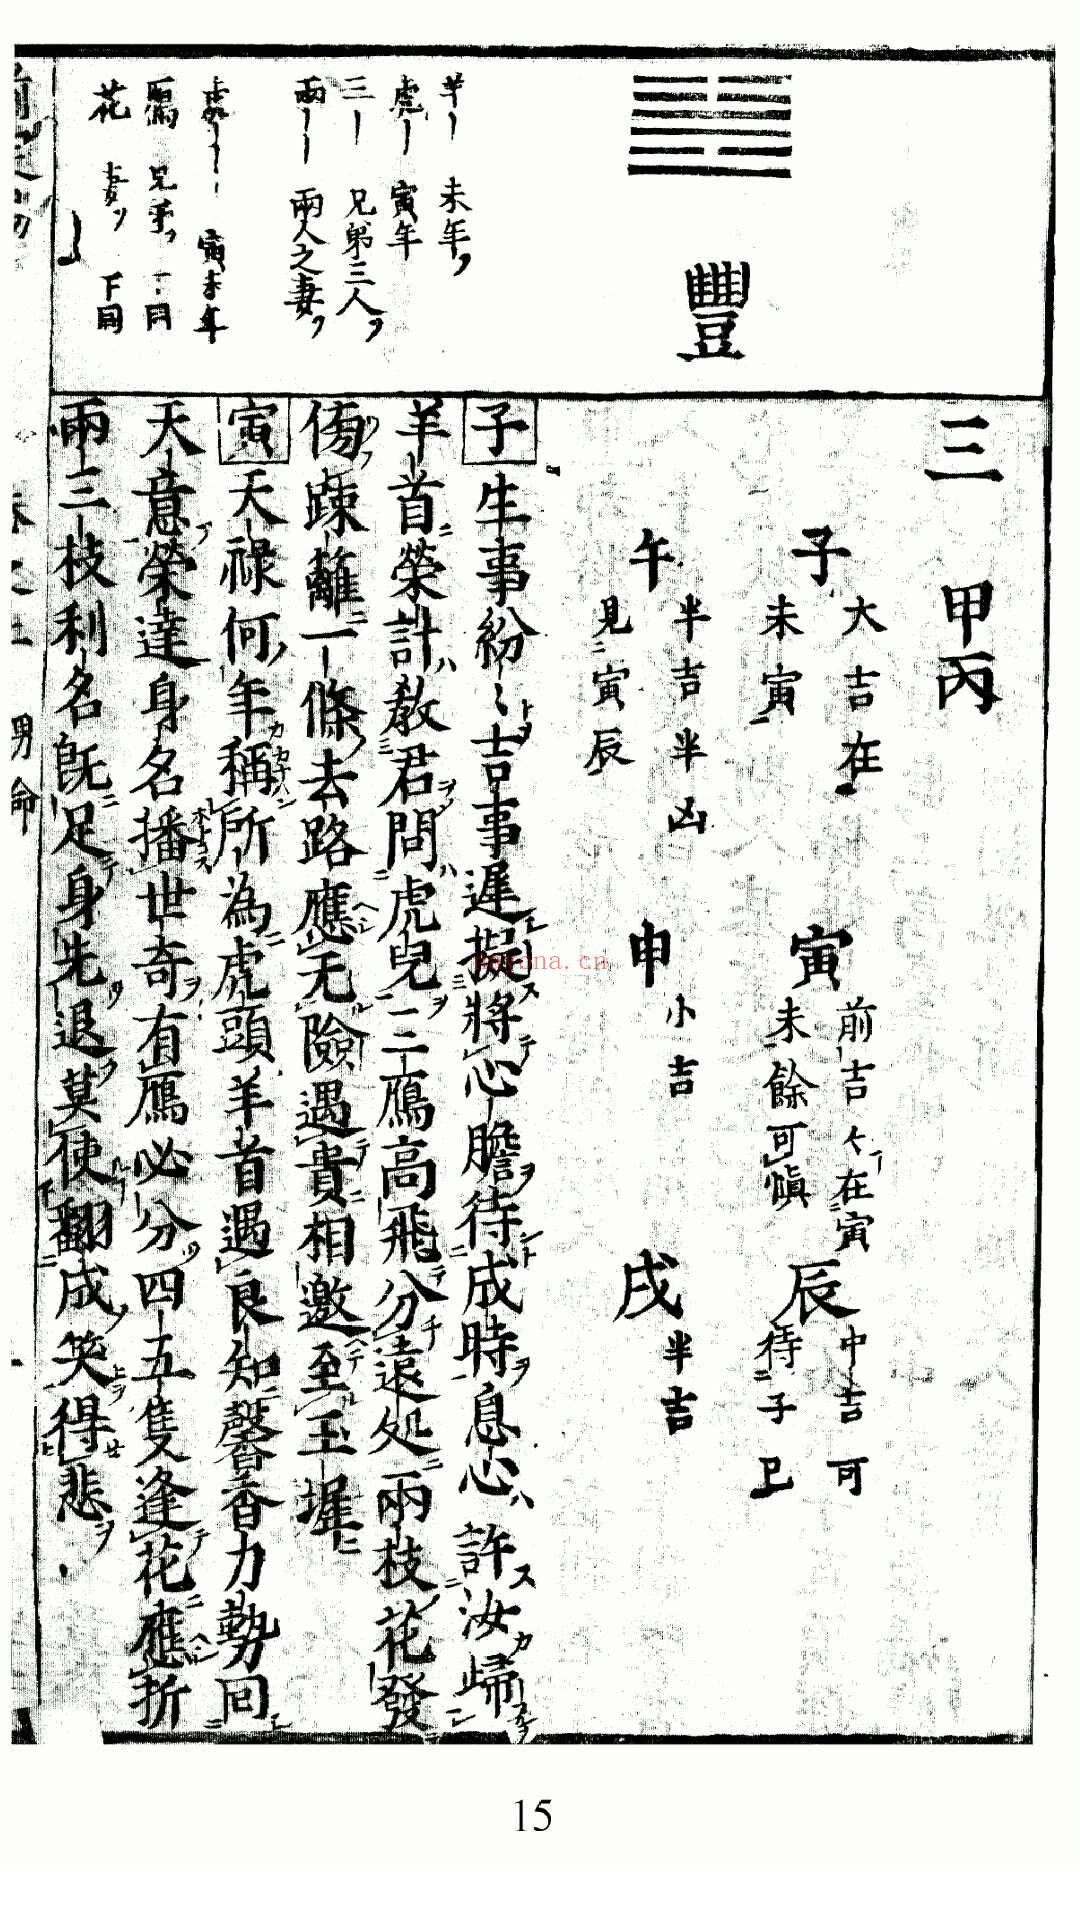 豐
羊｜　未年
虎｜　寅年
三｜　兄弟三人
兩｜｜　兩人之妻
寅未年
鴈　兄弟
花　妻　下同
三　甲丙
子　大吉在
未寅
寅　前吉々在寅
未餘可愼
辰　中吉可
待子巳
午　半吉半凶
見寅辰
申　小吉
戌　半吉
子生事紛〻吉事遲擬將心膽待成時息心許汝歸
羊首榮計教君問虎兒三鴈高飛分遠処兩枝花發
傍疎籬一條去路應无險遇貴相邀至玉墀
寅天祿何年稱所為虎頭羊首遇良知馨香力勢回
天意榮達身名播世奇有鴈必分四五隻逢花應折
兩三枝利名既足身先退莫使翻成笑得悲
男命
nayona.cn
15